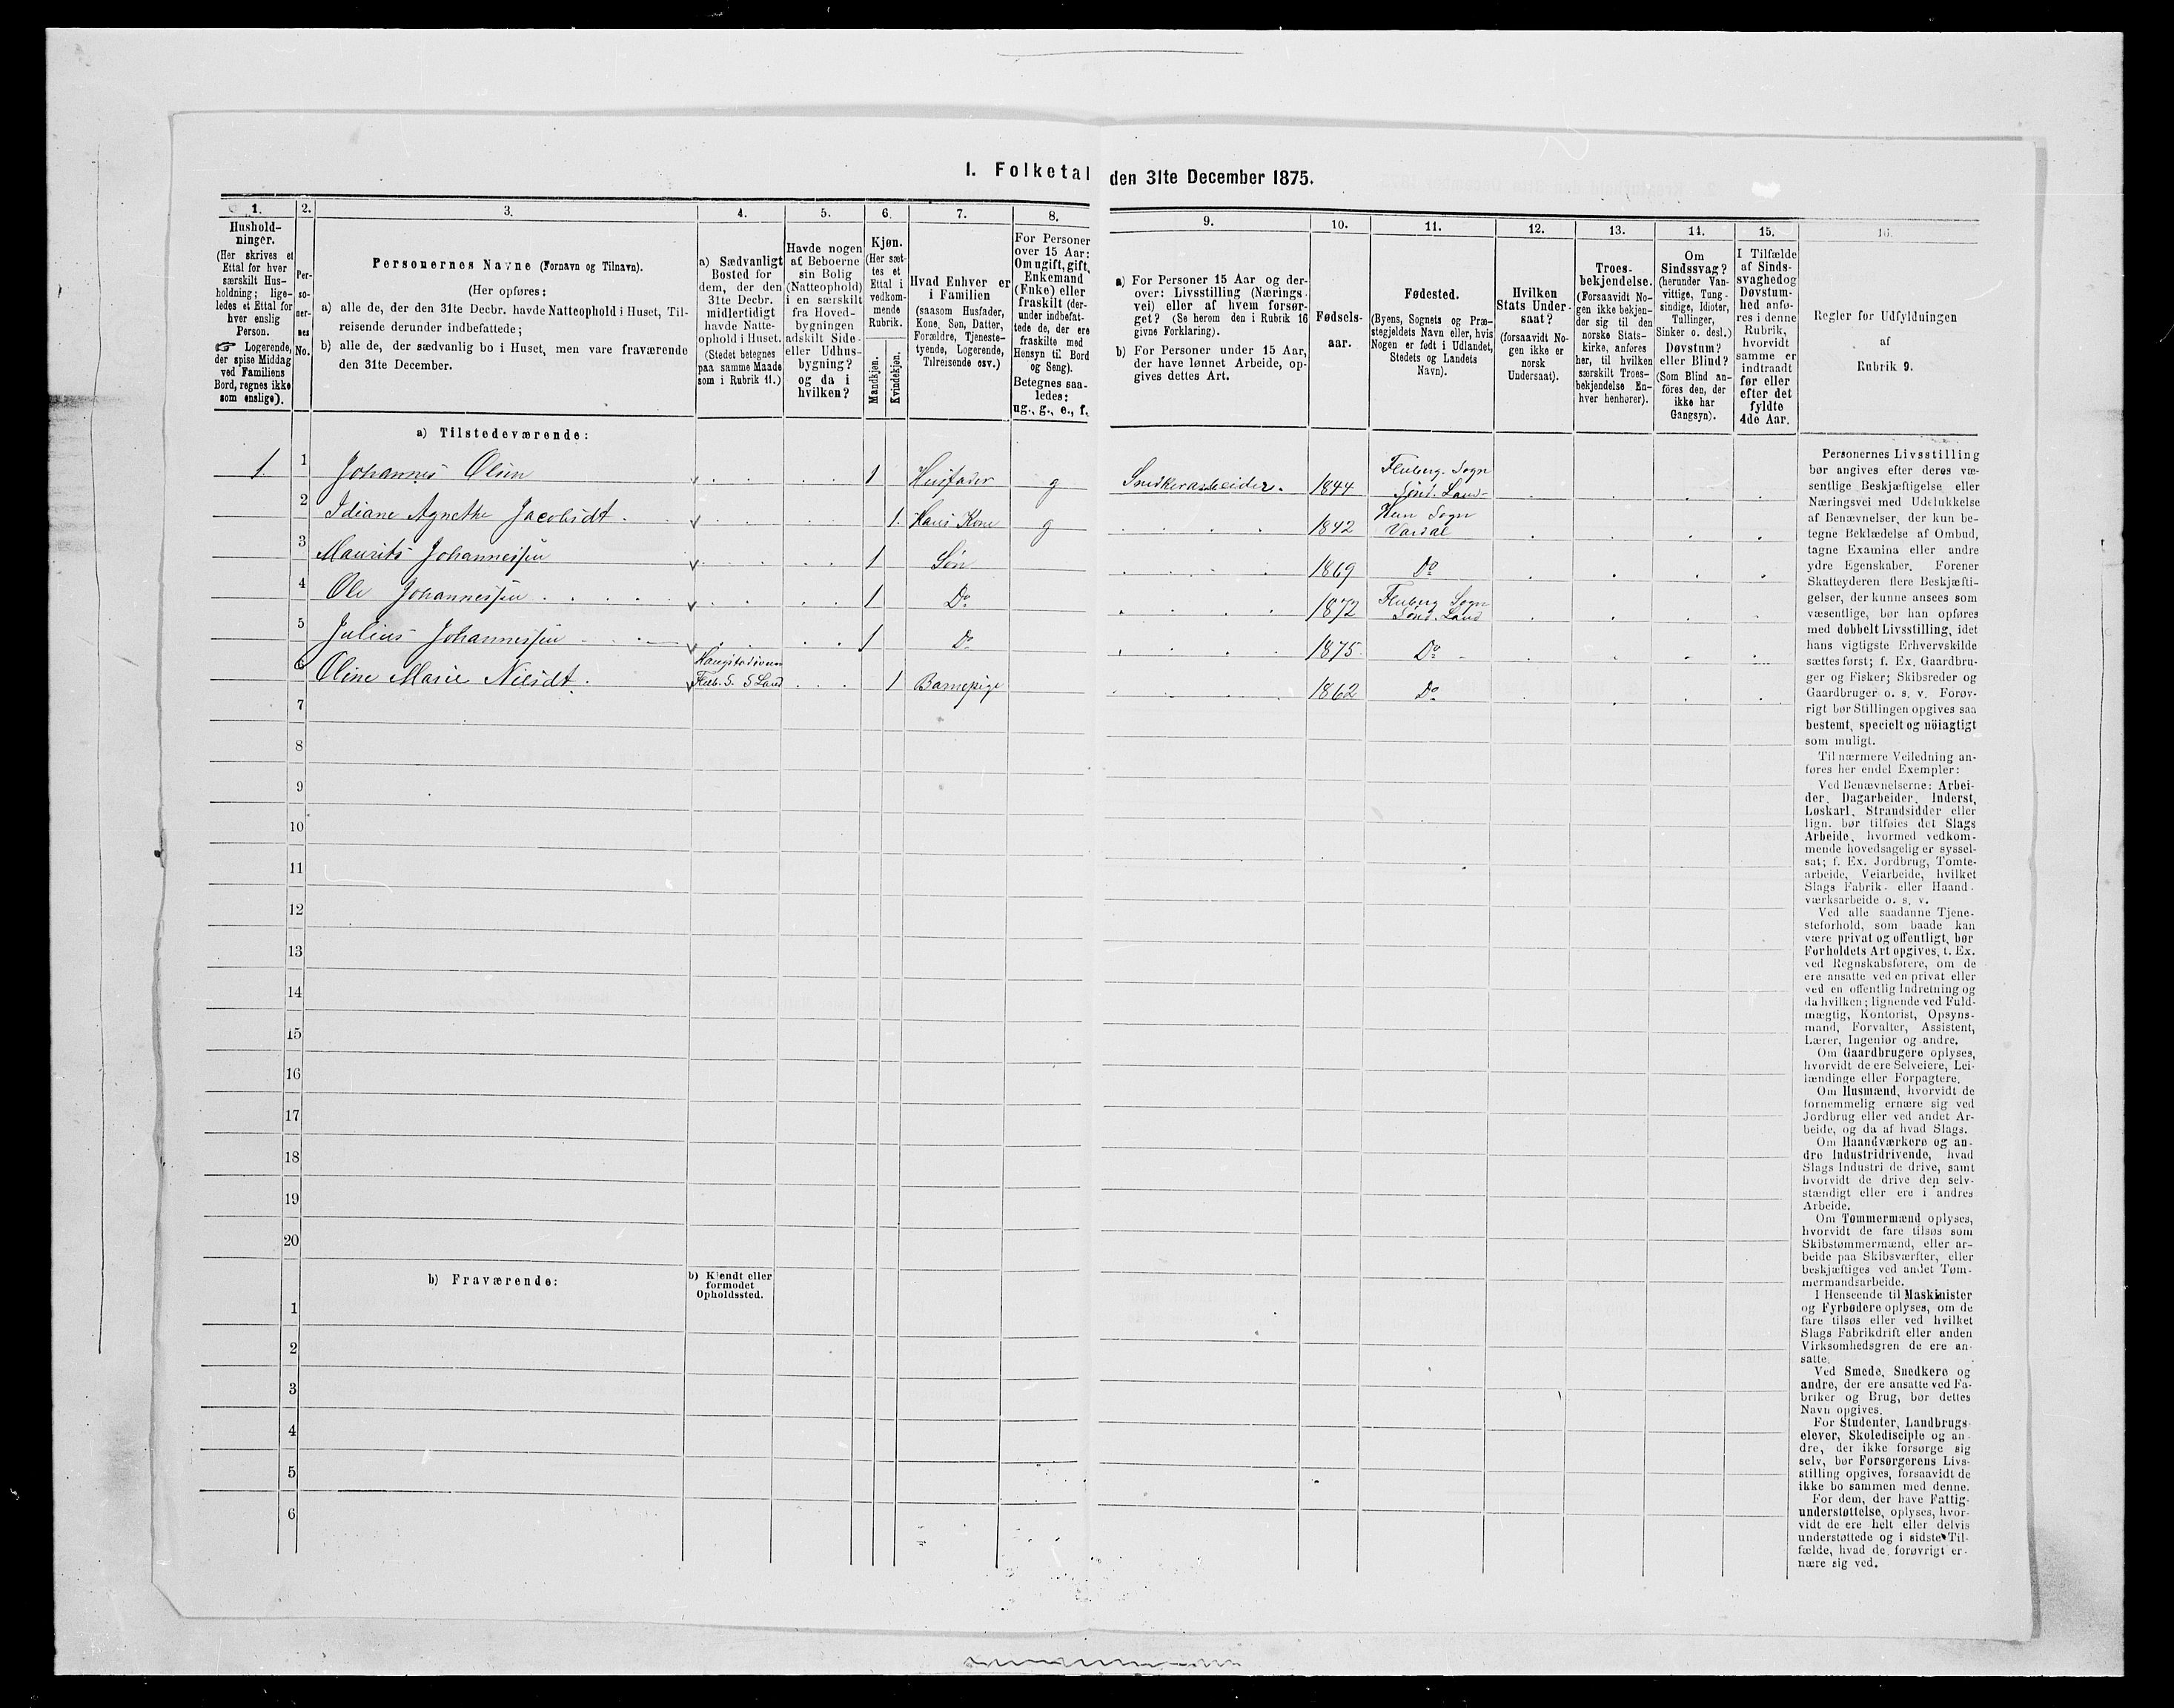 I. Folketal den 31te December 1875.
1.
Hushold-
ninger.
(Her skrives et
Ettal for hver
særskilt Hus-
holdning; lige-
ledes et Ettal for
hver enslig
Person.
☞ Logerende,
der spise Middag
ved Familiens
Bord, regnes ikke
som enslige).
2.
Per-
so-
ner-
nes
No.
3.
Personernes Navne (Fornavn og Tilnavn).
(Her opføres:
a) alle de, der den 31te Decbr. havde Natteophold i Huset, Til-
reisende derunder indbefattede;
b) alle de, der sædvanlig bo i Huset, men vare fraværende
den 31te December.
4.
a) Sædvanligt
Bosted for
dem, der den
31te Decbr.
midlertidigt
havde Natte-
ophold i Huset.
(Stedet betegnes
paa samme Maade
som i Rubrik 11.)
5.
Havde nogen
af Beboerne
sin Bolig
(Natteophold)
i en særskilt
fra Hoved-
bygningen
adskilt Side-
eller Udhus-
bygning?
og da i
hvilken?
6.
Kjøn.
(Her sæt-
tes et
Ettal i
vedkom-
mende
Rubrik.
Mandkjøn.
Kvindekjøn.
7.
Hvad Enhver er
i Familien
(saasom Husfader,
Kone, Søn, Datter,
Forældre, Tjeneste-
tyende, Logerende,
Tilreisende osv.)
8.
For Personer
over 15 Aar:
Om ugift, gift,
Enkemand
(Enke) eller
fraskilt (der-
under indbefat-
tede de, der ere
fraskilte med
Hensyn til Bord
og Seng).
Betegnes saa-
ledes:
ug., g., e., f.
9.
a) For Personer 15 Aar og der-
over: Livsstilling (Nærings-
vei) eller af hvem forsør-
get? (Se herom den i Rubrik 16
givne Forklaring).
b) For Personer under 15 Aar,
der have lønnet Arbeide, op-
gives dettes Art.
10.
Fødsels-
aar.
11.
Fødested.
(Byens, Sognets og Præ-
stegjeldets Navn eller, hvis
Nogen er født i Udlandet,
Stedets og Landets
Navn).
12.
Hvilken
Stats Under-
saat?
(forsaavidt No-
gen ikke er
norsk
Undersaat).
13.
Troes-
bekjendelse.
(Forsaavidt No-
gen ikke bekjen-
der sig til den
norske Stats-
kirke, anføres
her, til hvilken
særskilt Troes-
bekjendelse En-
hver henhører).
14.
Om
Sindssvag?
(herunder Van-
vittige, Tung-
sindige, Idioter,
Tullinger,
Sinker o. desl.)
Døvstum?
eller Blind?
(Som Blind an-
føres den, der
ikke har
Gangsyn).
15.
I Tilfælde
af Sinds-
svaghed og
Døvstum-
hed anfø-
res i denne
Rubrik,
hvorvidt
samme er
indtraadt
før eller
efter det
fyldte
4de Aar.
16.
Regler for Udfyldningen
af
Rubrik 9.
a) Tilstedeværende:
1 1 Johannes Olsen 1 Husfader g Snedkerarbeider. 1844 Fluberg Sogn Sønd. Land
2 Idiane Agnethe Jacobsdt 1 Hans Kone g 1842 Hun Sogn Vardal
3 Maurits Johannessen 1 Søn 1869 Do
4 Ole Johannessen 1 Do 1872 Fluberg Sogn Sønd. Land
5 Julius Johannessen 1 Do 1875 Do
6 Oline Marie Nilsdt. Flub. S. S Land 1 Barnepige 1862 Do
7
8
9
10
11
12
13
14
15
16
17
18
19
20
b) Fraværende:
b) Kjendt eller
formodet
Opholdssted.
1
2
3
4
5
6
Personernes Livsstilling
bør angives efter deres væ-
sentlige Beskjæftigelse eller
Næringsvei med Udelukkelse
af Benævnelser, der kun be-
tegne Beklædelse af Ombud,
tagne Examina eller andre
ydre Egenskaber. Forener
Skatteyderen flere Beskjæfti-
gelser, der kunne ansees som
væsentlige, bør han opføres
med dobbelt Livsstilling, idet
hans vigtigste Erhvervskilde
sættes først; f. Ex. Gaardbru-
ger og Fisker; Skibsreder og
Gaardbruger o. s. v. Forøv-
rigt bør Stillingen opgives saa
bestemt, specielt og nöiagtigt
som muligt.
Til nærmere Veiledning an-
føres her endel Exempler:
Ved Benævnelserne: Arbei-
der, Dagarbeider, Inderst,
Løskarl, Strandsidder eller
lign. bør tilføies det Slags
Arbeide, hvormed vedkom-
mende hovedsagelig er syssel-
sat; f. Ex. Jordbrug, Tomte-
arbeide, Veiarbeide, hvilket
Slags Fabrik- eller Haand-
værksarbeide o. s. v.
Ved alle saadanne Tjene-
steforhold, som baade kan
være privat og offentligt, bør
Forholdets Art opgives, f. Ex.
ved Regnskabsførere, om de
ere ansatte ved en privat eller
ved en offentlig Indretning og
da hvilken; lignende ved Fuld-
mægtig, Kontorist, Opsyns-
mand, Forvalter, Assistent,
Lærer, Ingeniør og andre.
Om Gaardbrugere oplyses,
hvorvidt de ere Selveiere, Lei-
lændinge eller Forpagtere.
Om Husmænd, hvorvidt de
fornemmelig ernære sig ved
Jordbrug eller ved andet Ar-
beide, og da af hvad Slags.
Om Haandværkere og an-
dre Industridrivende, hvad
Slags Industri de drive, samt
hvorvidt de drive den selv-
stændigt eller ere i andres
Arbeide.
Om Tømmermænd oplyses,
hvorvidt de fare tilsøs som
Skibstømmermænd, eller ar-
beide paa Skibsværfter, eller
beskjæftiges ved andet Tøm-
mermandsarbeide.
I Henseende til Maskinister
og Fyrbødere oplyses, om de
fare tilsøs eller ved hvilket
Slags Fabrikdrift eller anden
Virksomhedsgren de ere an-
satte.
Ved Smede, Snedkere og
andre, der ere ansatte ved Fa-
briker og Brug, bør dettes
Navn opgives.
For Studenter, Landbrugs-
elever, Skoledisciple og an-
dre, der ikke forsørge sig
selv, bør Forsørgerens Livs-
stilling opgives, forsaavidt de
ikke bo sammen med denne.
For dem, der have Fattig-
understøttelse, oplyses, hvor-
vidt de ere helt eller delvis
understøttede og i sidste Til-
fælde, hvad de forøvrigt er-
nære sig ved.